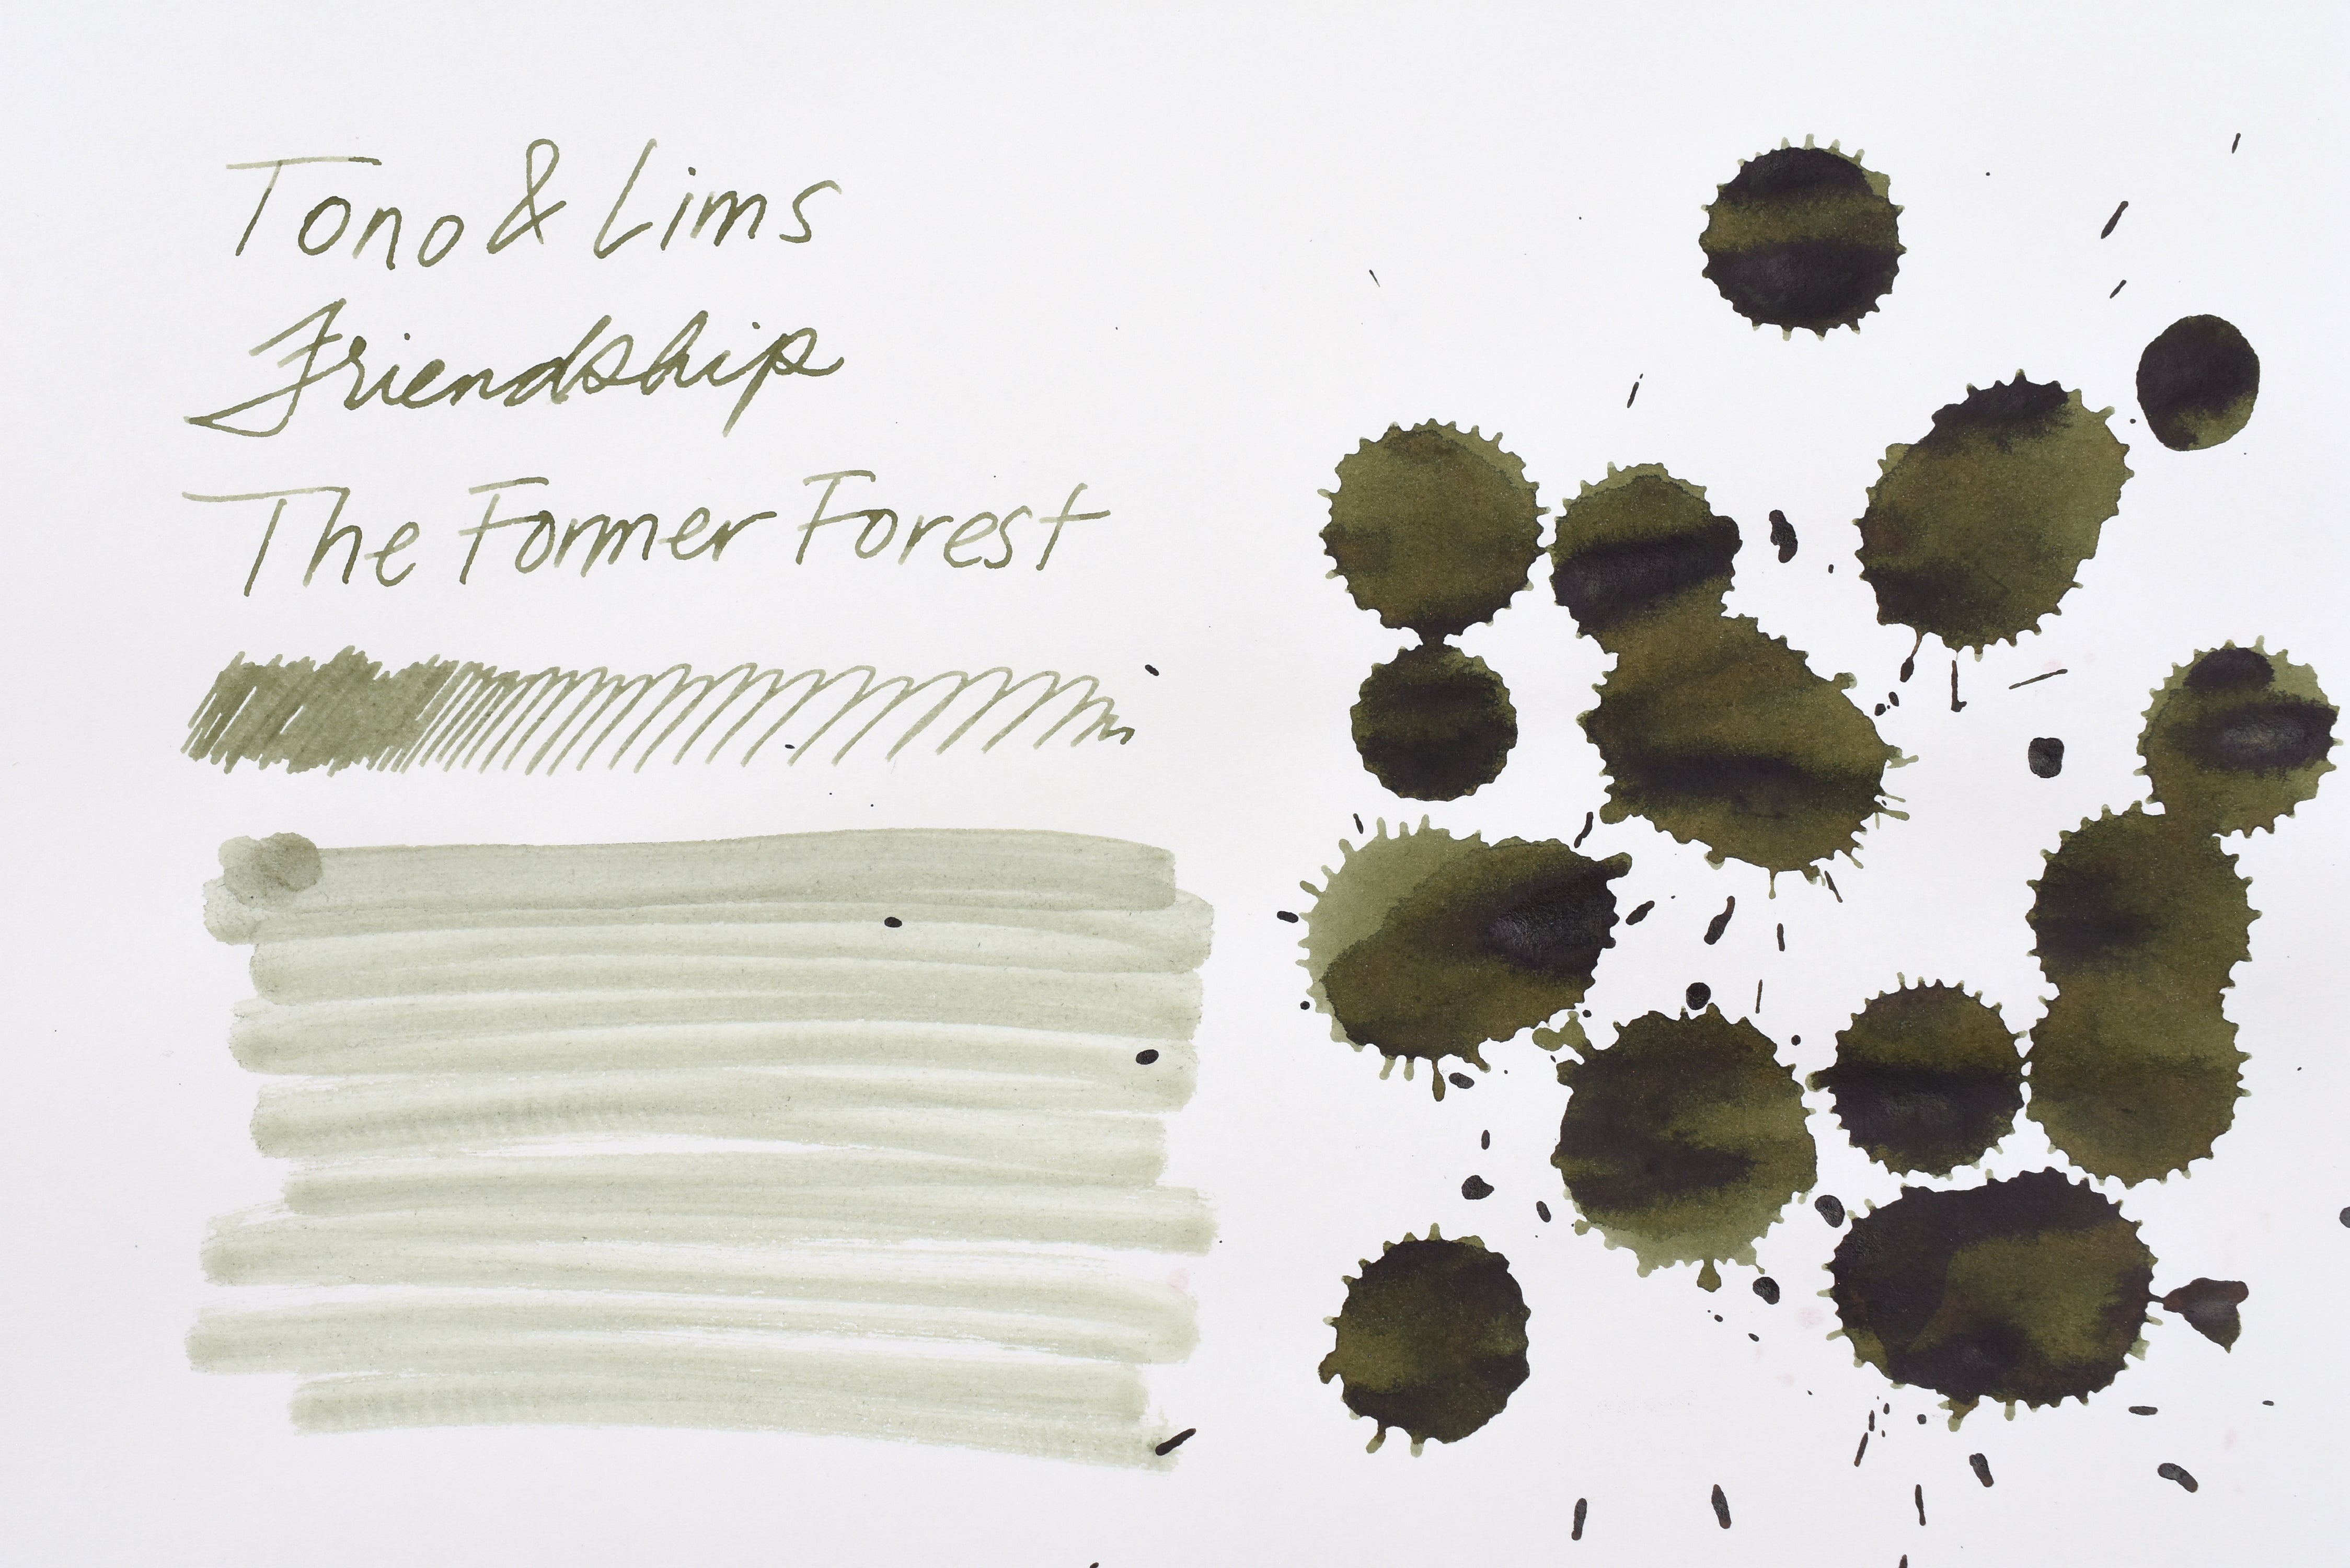 Tono & Lims
Friendship
The Former Forest